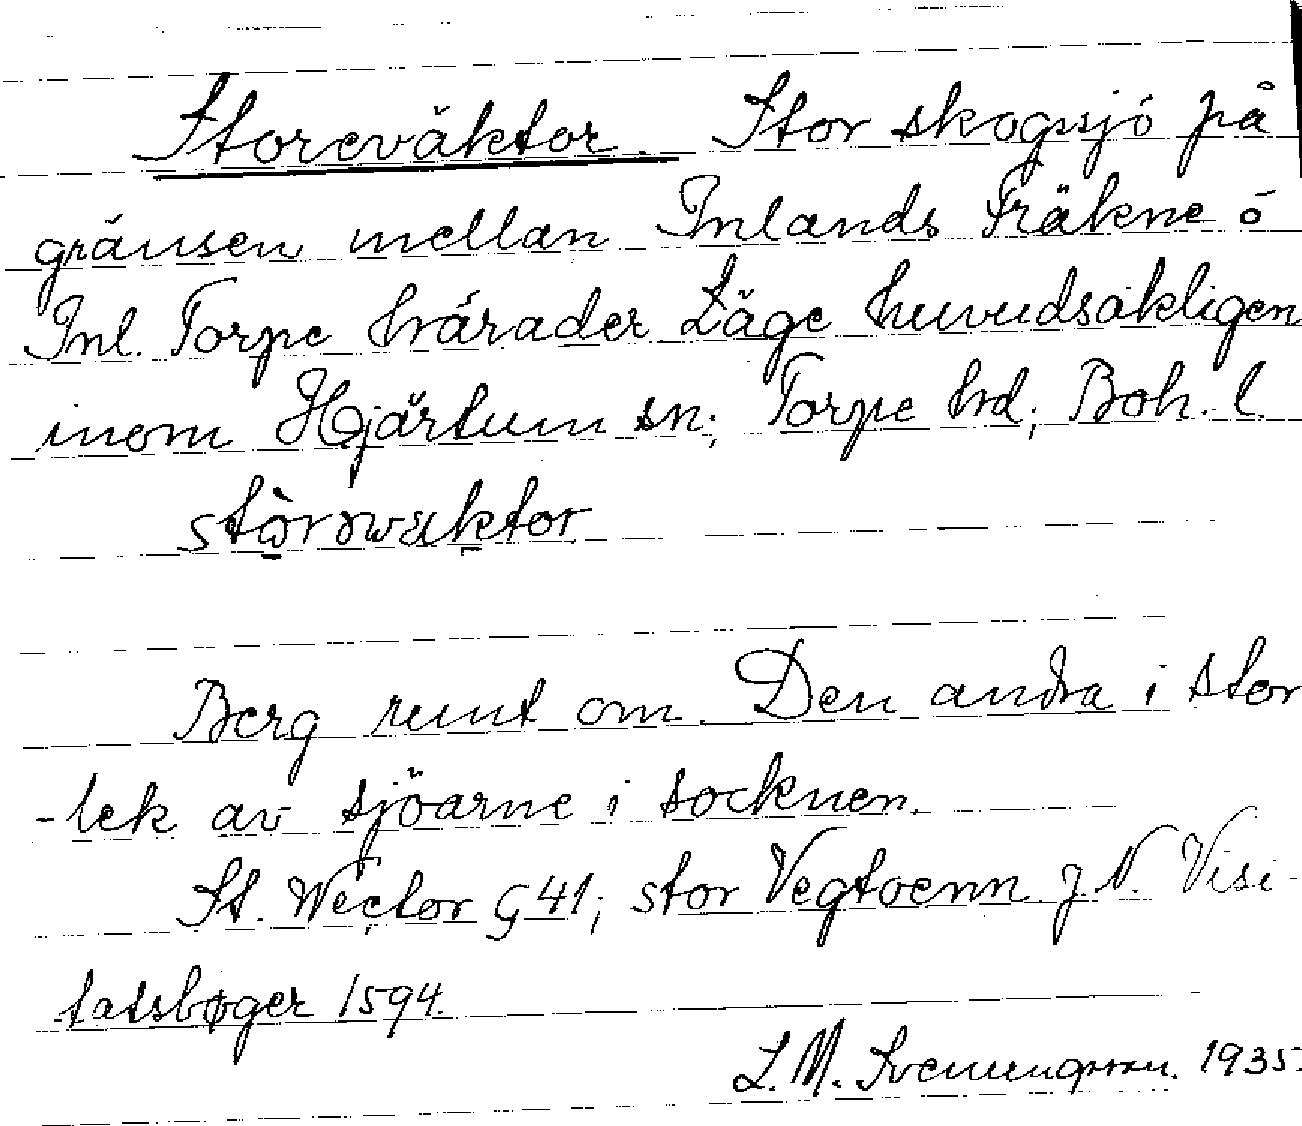 Storeväktor. Stor skogssjö på
gränsen mellan Inlands Fräkne o
Inl. Torpe härader Läge huvudsakligen
inom Hjärtum sn; Torpe hd; Boh. l.
Berg runt om. Den andra i stor
-lek av sjöarne i socknen.
St. Wector G 41; stor Vegtoenn J. N. Visi-
tatsbøger 1594.
L. M. Svenungsson. 1935.